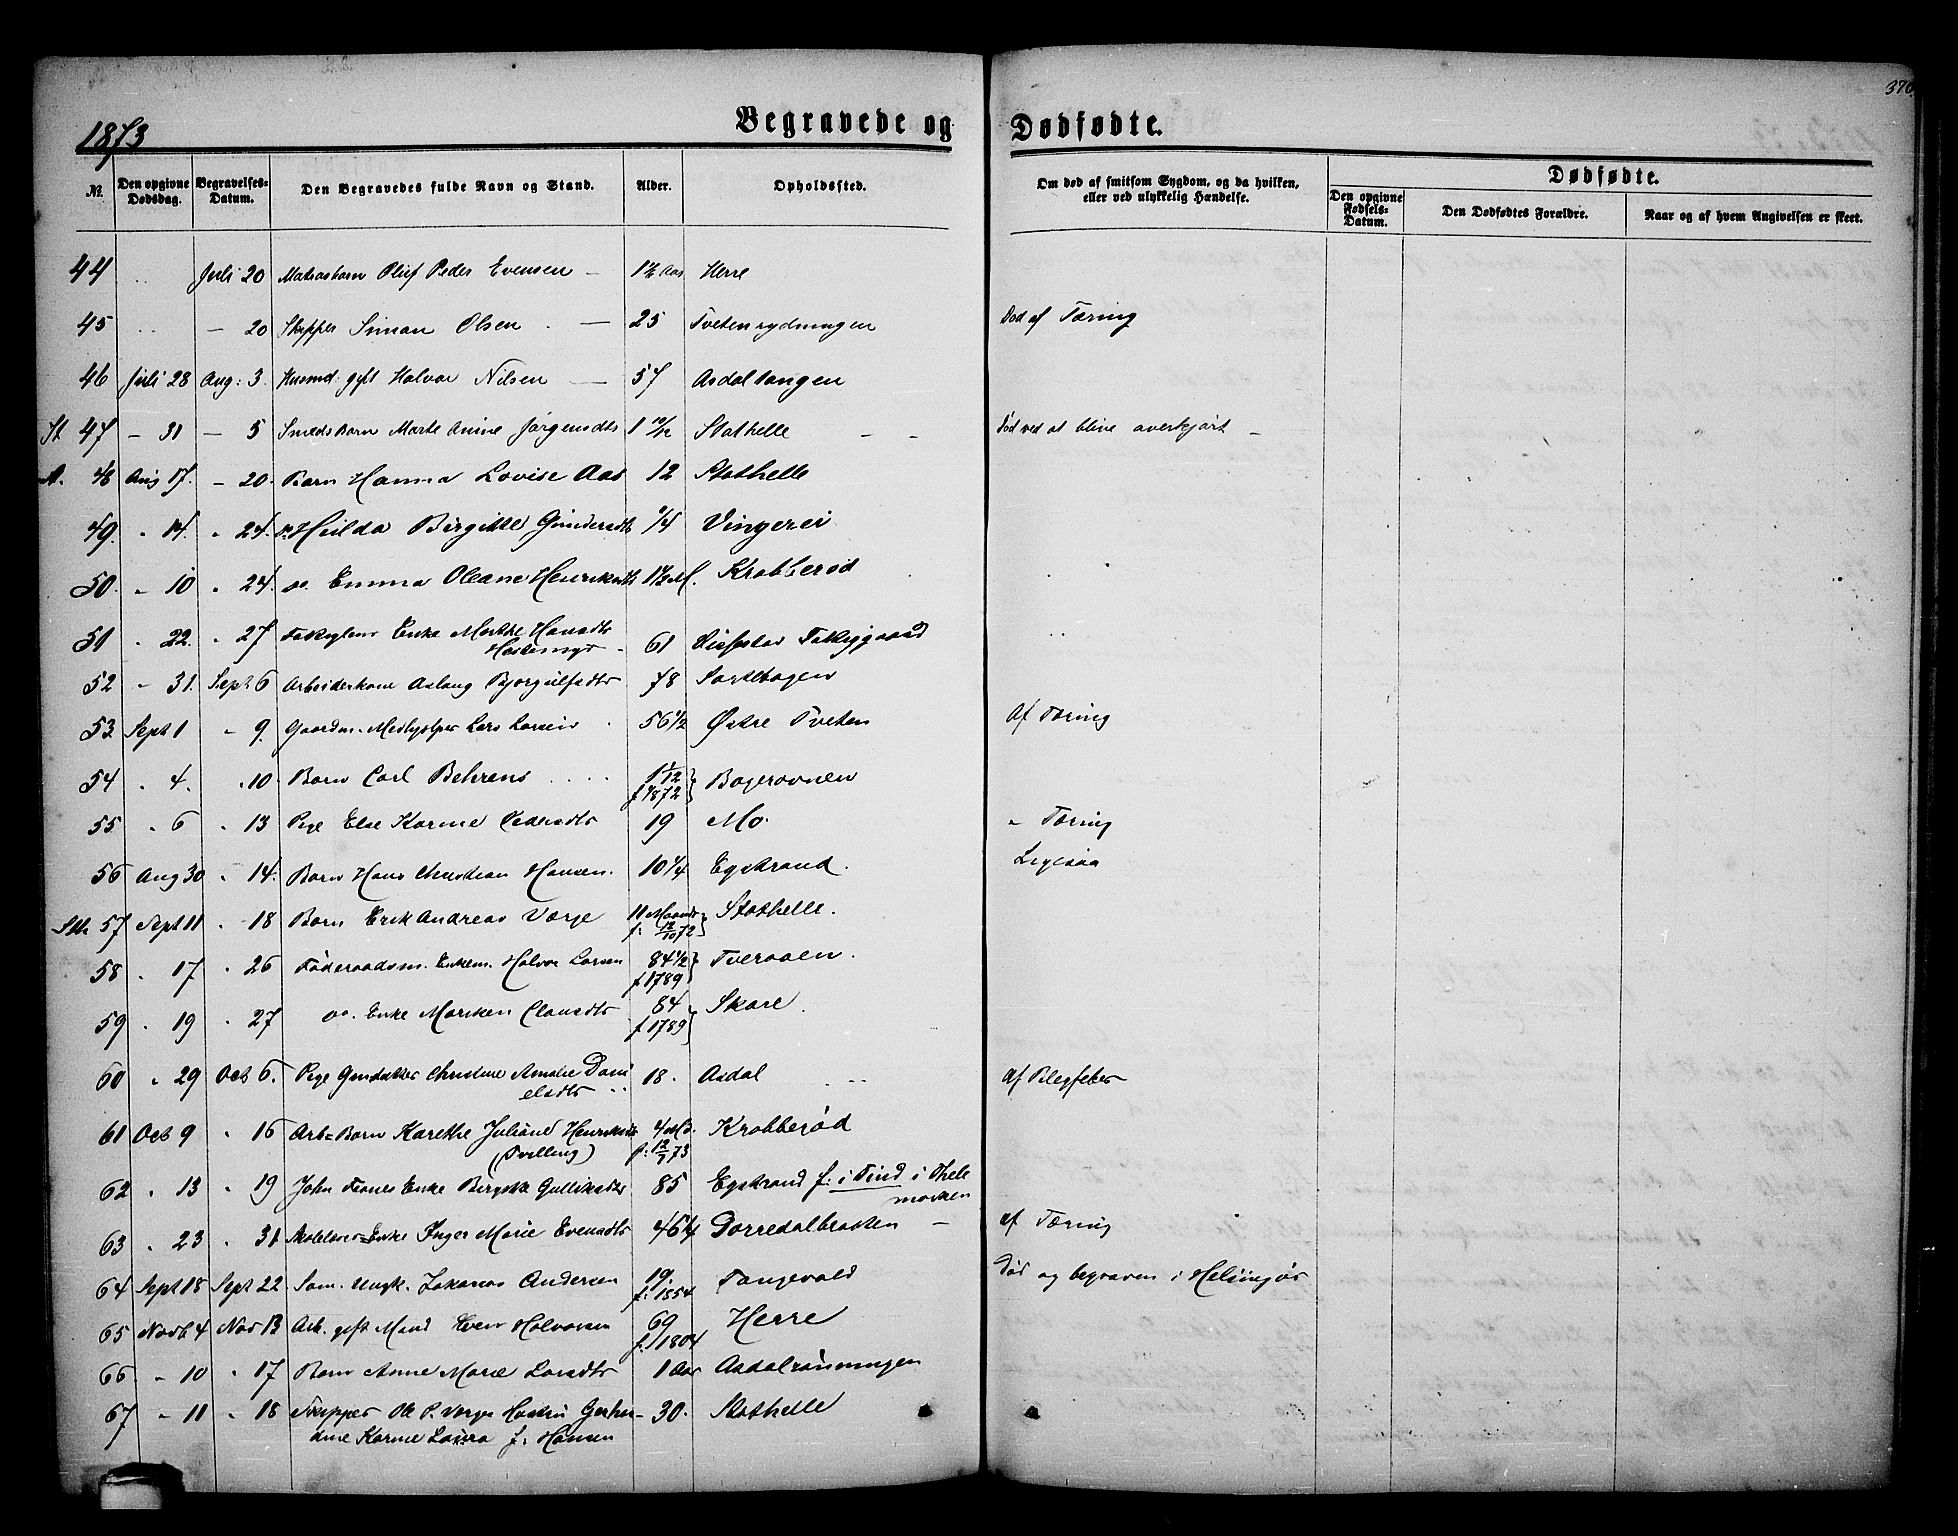 370
1873
Begravede og Dødfødte.
№. Den opgivne Dødsdag. Begravelses-Datum. Den Begravedes fulde Navn og Stand. Alder. Opholdssted. Om død af smitsom Sygdom, og da hvilken, eller ved ulykkelig Hændelse. Dødfødte. Den opgivne Fødsels-Datum. Den Dødfødtes Forældre. Naar og af hvem Angivelsen er skeet.
44 .. Juli 20 Matrosbarn Oluf Peder Evensen — 1½ Aar Herre
45 .. — 20 Skipper Simon Olsen — 25 Tvetenrydningen Død af Tæring
46 Juli 28 Aug: 3. Husmd: gift Halvor Nilsen — 57 Asdaltangen
St 47 — 31 — 5 Smedsbarn Marte Anine Jørgensdtr 1 10/12 Stathelle Død ved at blive overkjørt —
48 Aug 17. — 20. Barn Hanna Lovise Aas 12 Stathelle
49. " 14. " 24. Hilda Birgitte Gundersdtr 1/4 Vingerei
50. " 10 " 24. do. Emma Oleane Henriksdtr 1½ M. Krabberød
51 " 22. " 27 Enke Marthe Hansdtr
Hestemyr - 61
52 " 31. Sept 6 Arbeiderkone Aslaug Bjørgulfsdtr 78 Sartebogen
53 Sept 1 " 9. Gaardm. Medhjelper Lars Larsen 56½ Østre Tveten Af Tæring
54 " 4. " 10. Barn Carl Behrens .... 1 1/12
f. 1872 Bogeravnen
55 " 6 " 13 Pige Else Karine Pedersdtr 19 Mo. " Tæring
56 Aug 30 " 14. Barn Hans Christian Hansen. 10¼ Egstrand.
Sth 57 Sept 11 " 18 Barn Erik Andreas Vorje 11 Maaneder
f: 12/10 72 Stathelle.
58 " 17 " 26 Føderaadsm. Enkem. Halvor Larsen 84½
f 1789 Tveraaen.
59 " 19 " 27 do. Enke Mariken Clausdtr 84
f 1789 Skare.
60 " 29 Oct 6. Pige Christine Amalie Dani
elsdtr 18. Asdal
61 Oct 9 " 16 Arb=Barn Karethe Juliane Henriksdtr 4 Md. Krabberød
(Tvilling) f: 12/7 73
62 " 13 " 19 John Enke Birgitte Gulliksdtr 85 Egstrand f: i Tind i Thele
marken
63 " 23 " 31 Skolelærer=Enke Inger Marie Evensdtr 46¼ Dorredalbraaten — af Tæring
64 Sept 18 Sept 22 Søm. Ungk. Johannes Andersen 19.
f: 1854 Tangevald Død og begraven i Helsingør
65 Novb 4 Nov 13 Arb. gift Mand Even Halvorsen 69
f. 1804 Herre
66 " 10 " 17 Barn Anne Marie Larsdtr 1 Aar Asdalrønningen
67 " 11 " 18 Skipper Ole P. Vorjes Hustru Gerhar-
dine Karine Laura f: Hansen 30. Stathelle